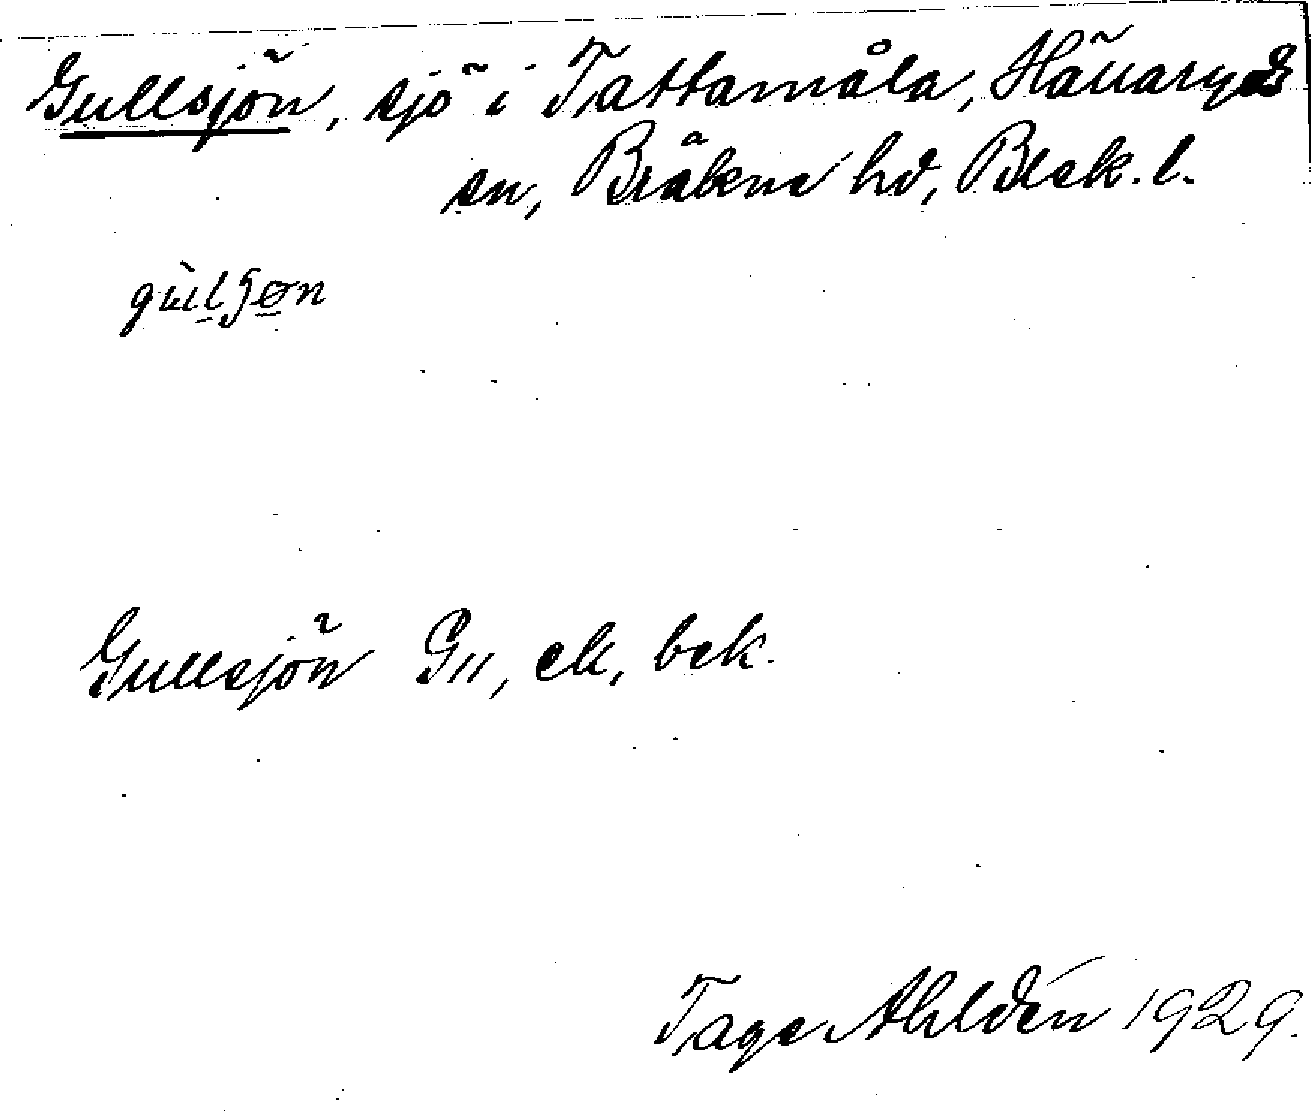 Gullsjön, sjö i Tattamåla, Hällaryds
sn, Bräkne hd, Blek. l.
Gullsjön G11, ek, bek.
Tage Ahldén 1929.